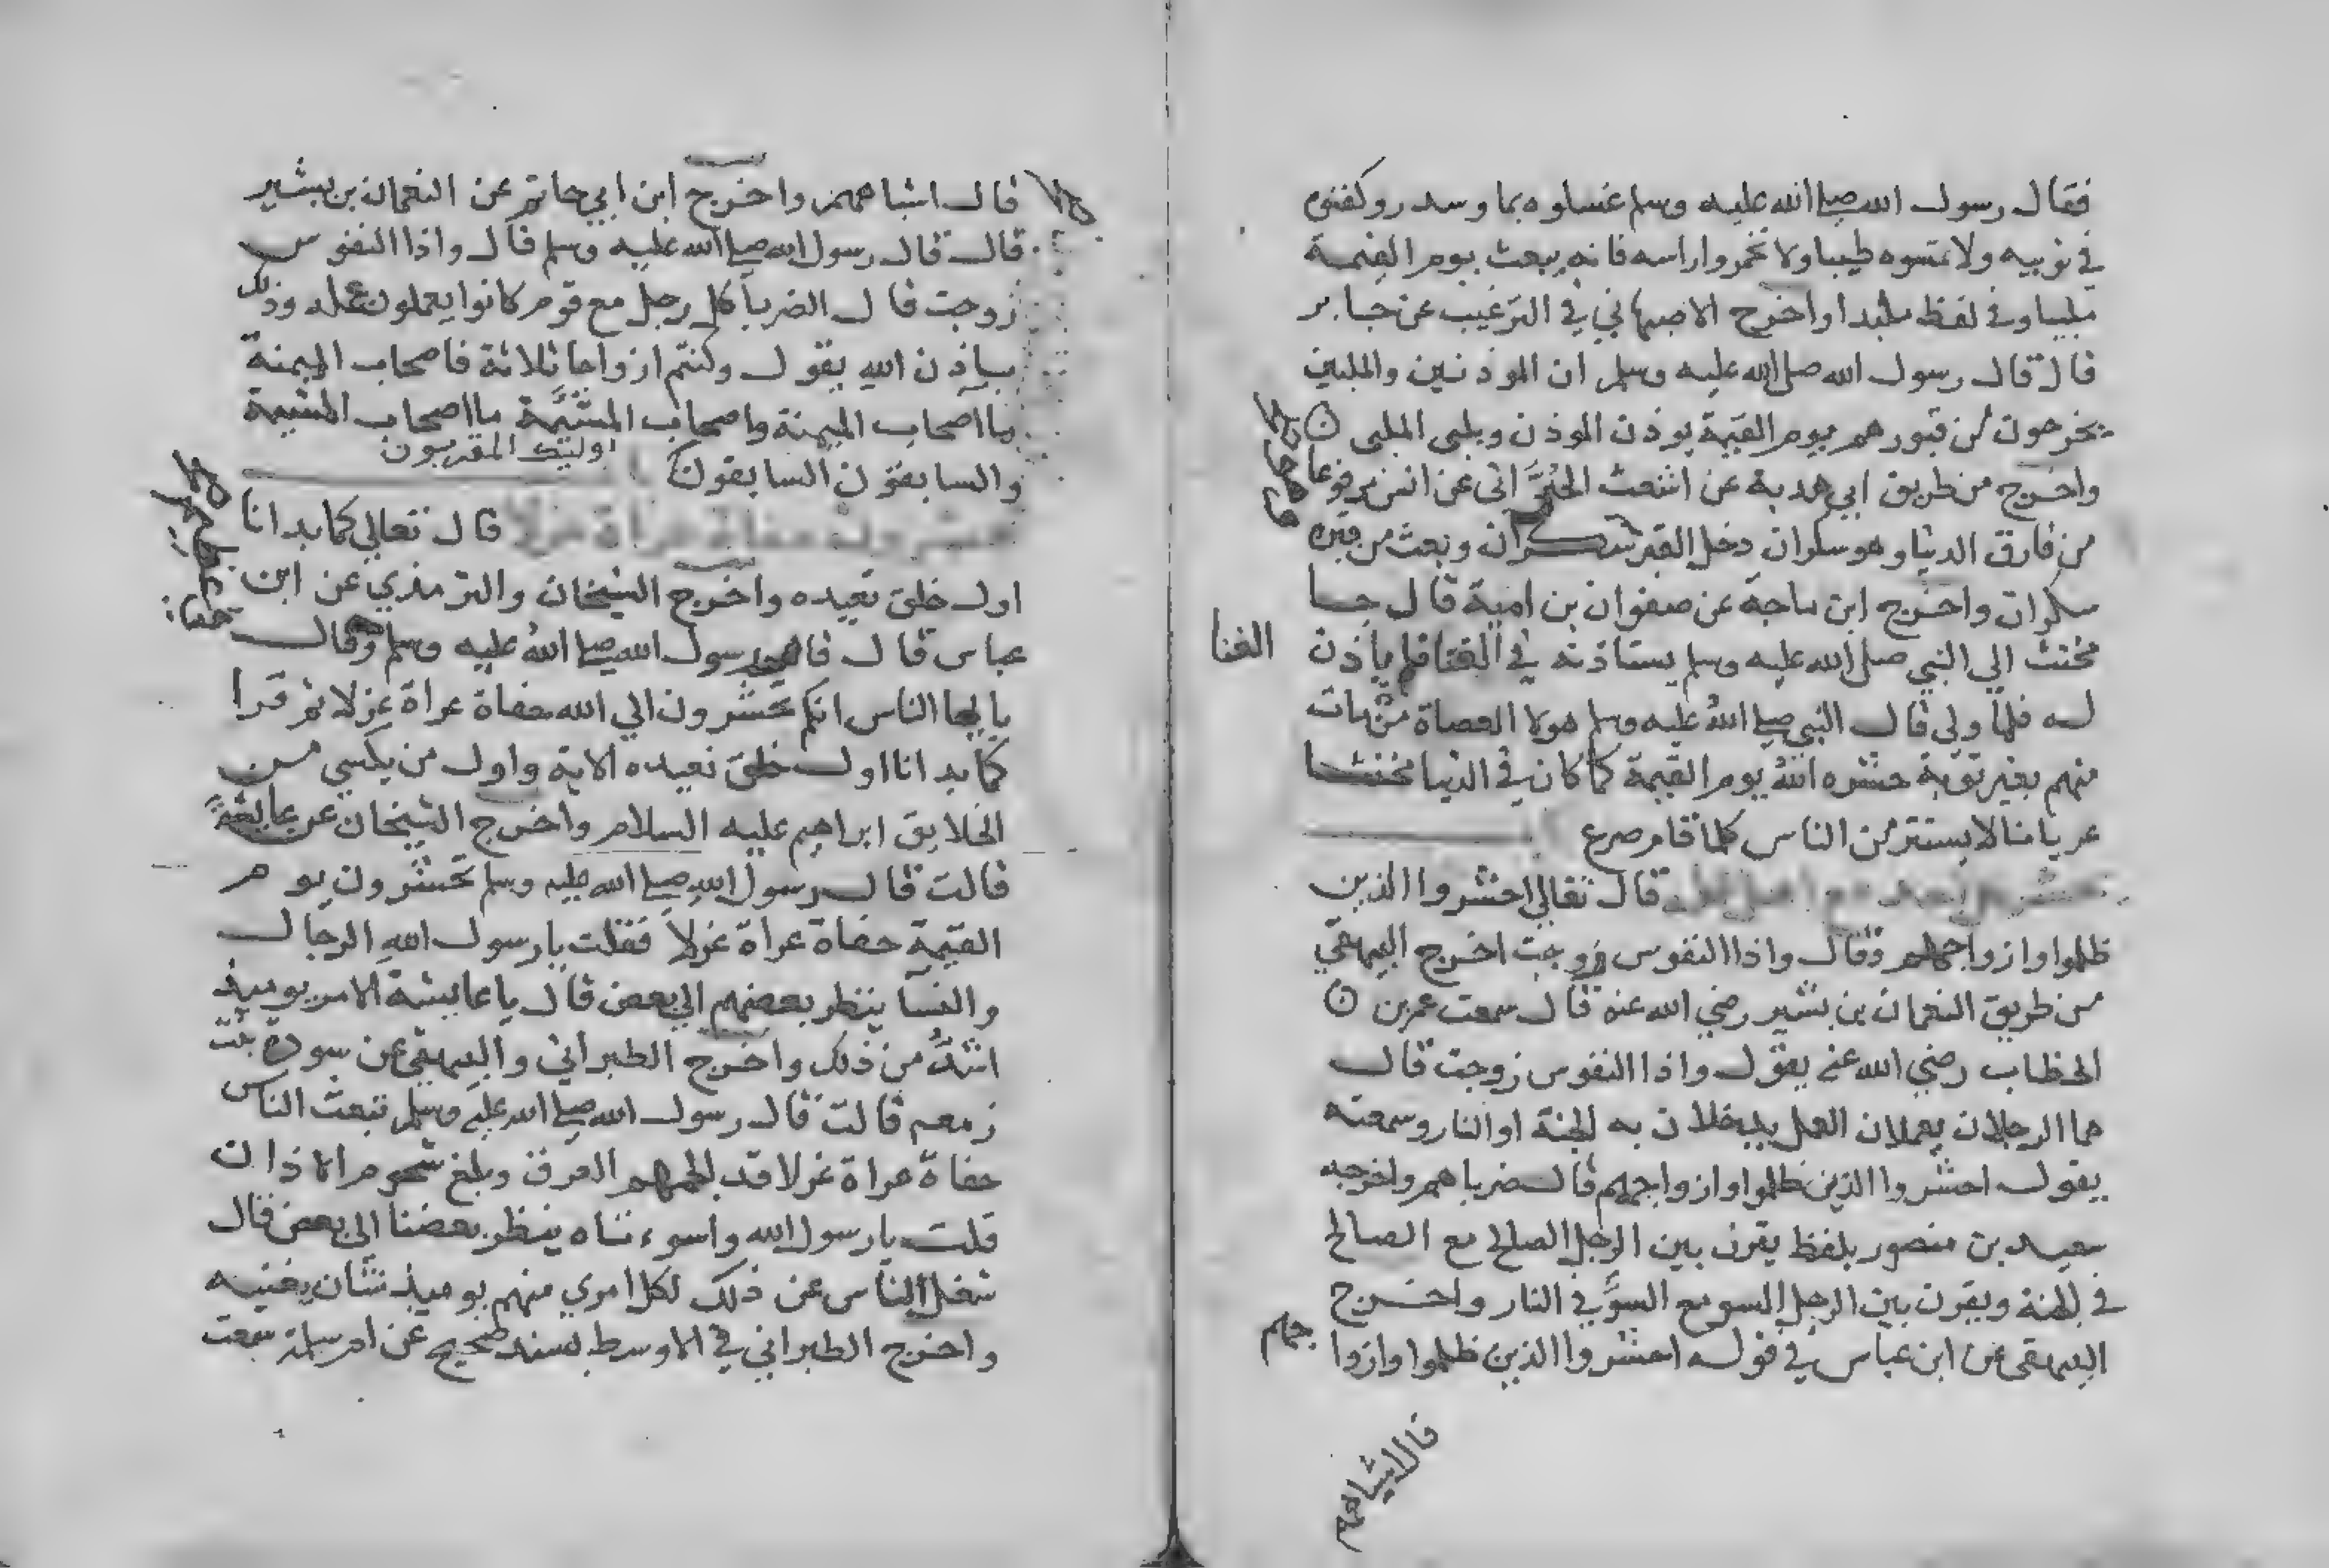 فقال رسول الله صلى الله عليه وسلم غسلوه بما وسدر وكفنوه
في ثوبيه ولا تمسوه طيبا ولا تخمروا راسه فانه يبعث يوم القيمة
ملبيا وفي لفظ ملبدا واخرج الاصبهاني في الترغيب عن جابر
قال قال رسول الله صلى الله عليه وسلم ان الموذنين والملبين
يخرجون من قبورهم يوم القيمة يوذن الموذن ويلبى الملبى
واخرج من طريق ابي هدبة عن اشعث الحُدَّاني عن انس مرفوعا
من فارق الدنيا وهو سكران دخل القبر سكران وبعث من قبره
سكران واخرج ابن ماجة عن صفوان بن امية قال جا
مخنث الي النبي صلى الله عليه وسلم يستاذنه في الغنا فلم ياذن
الغنا
له فلما ولى قال النبي صلى الله عليه وسلم هولا العصاة من مات
منهم بغير توبة حشره الله يوم القيمة كما كان في الدنيا مخنثا
عريانا لا يستتر من الناس كلما قام صرع
قال تعالي احشروا الذين
ظلموا وازواجهم وقال واذا النفوس زوجت اخرج البيهقي
من طريق النعمان بن بشير رضي الله عنه قال سمعت عمر بن
الخطاب رضي الله عنه يقول واذا النفوس زوجت قال
هما الرجلان يعملان العمل يدخلان به الجنة او النار وسمعته
يقول احشروا الذين ظلموا وازواجهم قال ضرباهم واخرجه
سعيد بن منصور بلفظ يقرن بين الرجل الصالح مع الصالح
في الجنة ويقرن بين الرجل السو مع السوَّ في النار واخرج
البيهقى عن ابن عباس في قوله احشروا الذين ظلموا وازوا
جهم
قال اشباههم
قال اشباههم واخرج ابن ابي حاتم عن النعمان بن بشير
قال قال رسول الله صلى الله عليه وسلم قال واذا النفوس
زوجت قال الضربا كل رجل مع قوم كانوا يعملون عمله وذلك
بان الله يقول وكنتم ازواجا ثلاثة فاصحاب الميمنة
ما اصحاب الميمنة واصحاب المشئَمة ما اصحاب المشيمة
والسابقون السابقون
اوليك المقربون
قال تعالي كما بدانا
اول خلق نعيده واخرج الشيخان والترمذي عن ابن
عباس قال قام رسول الله صلى الله عليه وسلم وقال
يا ايها الناس انكم تحشرون الي الله حفاة عراة غزلا ثم قرا
كما بدانا اول خلق نعيده الاية واول من يكسي من
الخلايق ابراهيم عليه السلام واخرج الشيخان عن عايشة
قالت قال رسول الله صلى الله عليه وسلم تحشرون يوم
القيمة حفاة عراة غزلاً فقلت يا رسول الله الرجال
والنسا ينظر بعضهم الي بعض قال يا عايشة الامر يوميذ
اشدُّ من ذلك واخرج الطبراني والبيهقي عن سودة بنت
زمعه قالت قال رسول الله صلى الله عليه وسلم تبعث الناس
حفاة عراة غزلا قد الجمهم العرق وبلغ شحوم الاذان
قلت يا رسول الله واسوءتناه ينظر بعضنا الى بعض قال
شغل الناس عن ذلك لكل امري منهم يوميذ شان يغنيه
واخرج الطبراني في الاوسط بسند صحيح عن ام سلمة سمعت